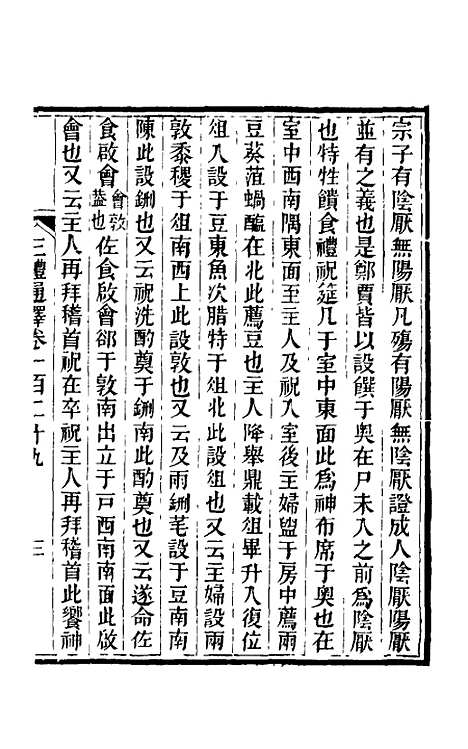 宗子有陰厭無陽厭凡殤有陽厭無陰厭證成人陰厭陽厭
並有之義也是鄭賈皆以設饌于奥在尸未入之前為陰厭
也特牲饋食禮祝筵几于室中東面此為神布席于奥也在
室中西南隅東面至主人及祝入室後主婦盥于房中薦兩
豆葵菹蝸醢在北此薦豆也主人降舉鼎載俎畢升入復位
俎入設于豆東魚次腊特于俎北此設俎也又云主婦設兩
敦黍稷于俎南西上此設敦也又云及兩鉶芼設于豆南南
陳此設鉶也又云祝洗酌奠于鉶南此酌奠也又云遂命佐
食啟會會敦蓋也佐食啟會郤于敦南出立于戸西南面此啟
會也又云主人再拜稽首祝在卒祝主人再拜稽首此饗神
三禮通釋卷一百二十九 三